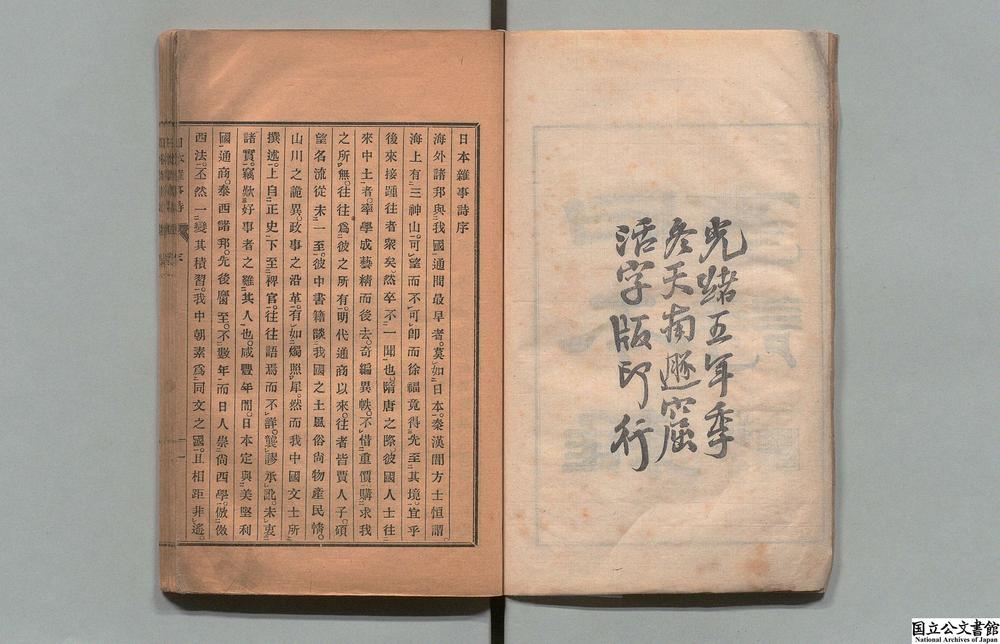 光緒五年季
冬天南遯窟
活字版印行
日本雜事詩序
海外諸邦與我國通問最早者。莫如日本。秦漢間方士恒謂
海上有三神山。可望而不可卽。而徐福竟得先至其境。宜乎
後來接踵往者衆矣。然卒不一聞也。隋唐之際。彼國人士往
來中土者。率學成藝精而後去。奇編異帙。不惜重價購求。我
之所無。往往爲彼之所有。明代通商以來。往者皆賈人子。碩
望名流從未一至。彼中書籍。談我國之土風俗尚物產民情。
山川之詭異。政事之沿革。有如燭照犀然。而我中國文士所
撰述。上自正史。下至稗官。往往語焉而不詳。襲謬承訛。未衷
諸實。竊歎好事者之難其人也。咸豐年間。日本定與美堅利
國通商。泰西諸邦。先後麕至。不數年而日人崇尚西學。倣傚
西法。丕然一變其積習。我中朝素爲同文之國。且相距非遙。
日本雜事詩
序
一
国立公文書館
National Archives of Japan